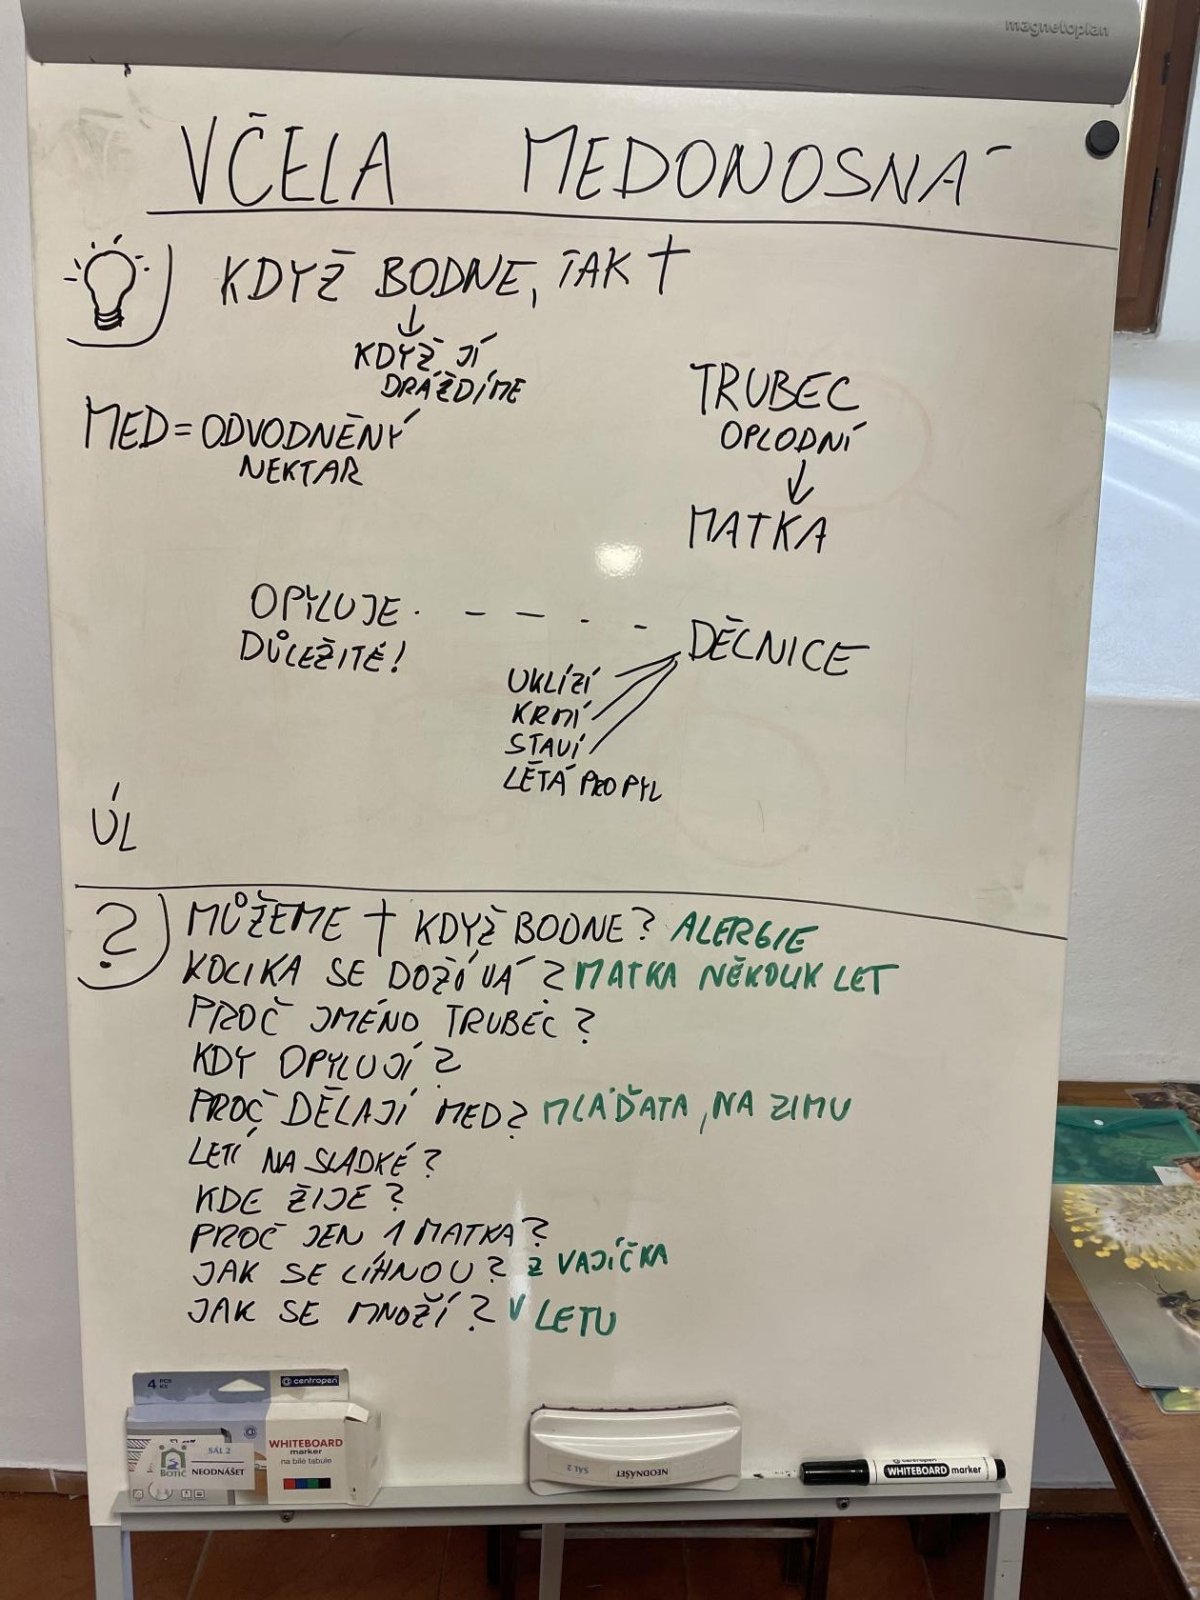 magnetoplan
VČELA MEDONOSNÁ
KDYŽ BODNE, TAK †
↓
KDYŽ JÍ
DRÁŽDÍME
MED = ODVODNĚNÝ
NEKTAR
TRUBEC
OPLODNÍ
↓
MATKA
OPYLUJE - - - - - DĚLNICE
DŮLEŽITÉ!
UKLÍZÍ
KRMÍ
STAVÍ
LÉTÁ PRO PYL
ÚL
? MŮŽEME † KDYŽ BODNE? ALERGIE
KOLIKA SE DOŽÍVÁ? MATKA NĚKOLIK LET
PROČ JMÉNO TRUBEC?
KDY OPYLUJÍ?
PROČ DĚLAJÍ MED? MLÁĎATA, NA ZIMU
LETÍ NA SLADKÉ?
KDE ŽIJE?
PROČ JEN 1 MATKA?
JAK SE LÍHNOU? Z VAJÍČKA
JAK SE MNOŽÍ? V LETU
4 PCS
KS
centropen
WHITEBOARD
marker
na bílé tabule
SÁL 2
BOTIČ NEODNÁŠET
NEODNÁŠET
SÁL 2
centropen
WHITEBOARD marker